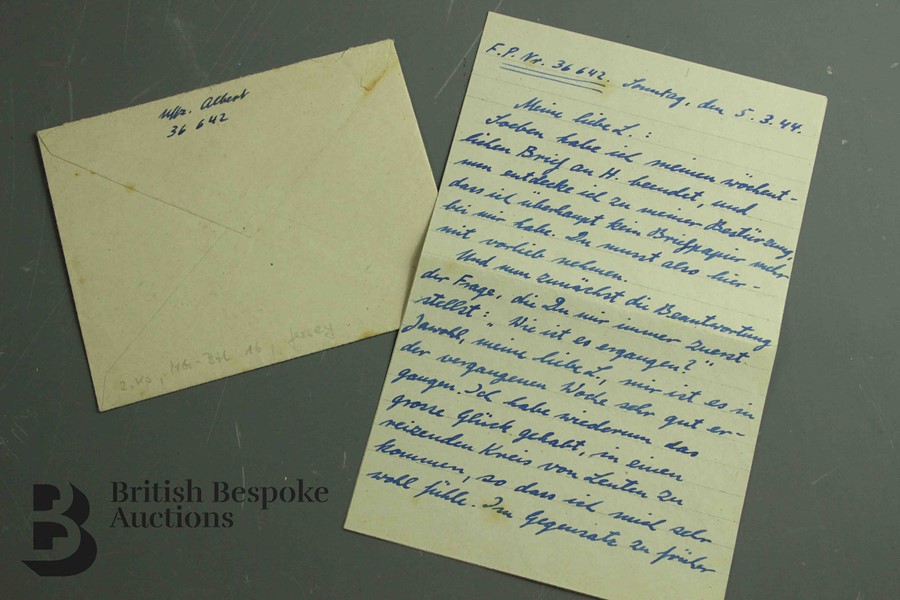 Uffz. Albert
36 642
2. Kp., MG-Btl. 16, Jersey
F.P. Nr. 36642. Sonntag, den 5.3.44.
Meine liebe L.:
Soeben habe ich meinen wöchent-
lichen Brief an H. beendet, und
nun entdecke ich zu meiner Bestürzung,
dass ich überhaupt kein Briefpapier mehr
bei mir habe. Du musst also hier-
mit vorlieb nehmen.
Und nun zunächst die Beantwortung
der Frage, die Du mir immer zuerst
stellst: „Wie ist es ergangen?"
Jawohl, meine liebe L., mir ist es in
der vergangenen Woche sehr gut er-
gangen. Ich habe wiederum das
grosse Glück gehabt, in einen
reizenden Kreis von Leuten zu
kommen, so dass ich mich sehr
wohl fühle. Im Gegensatz zu früher
British Bespoke
Auctions